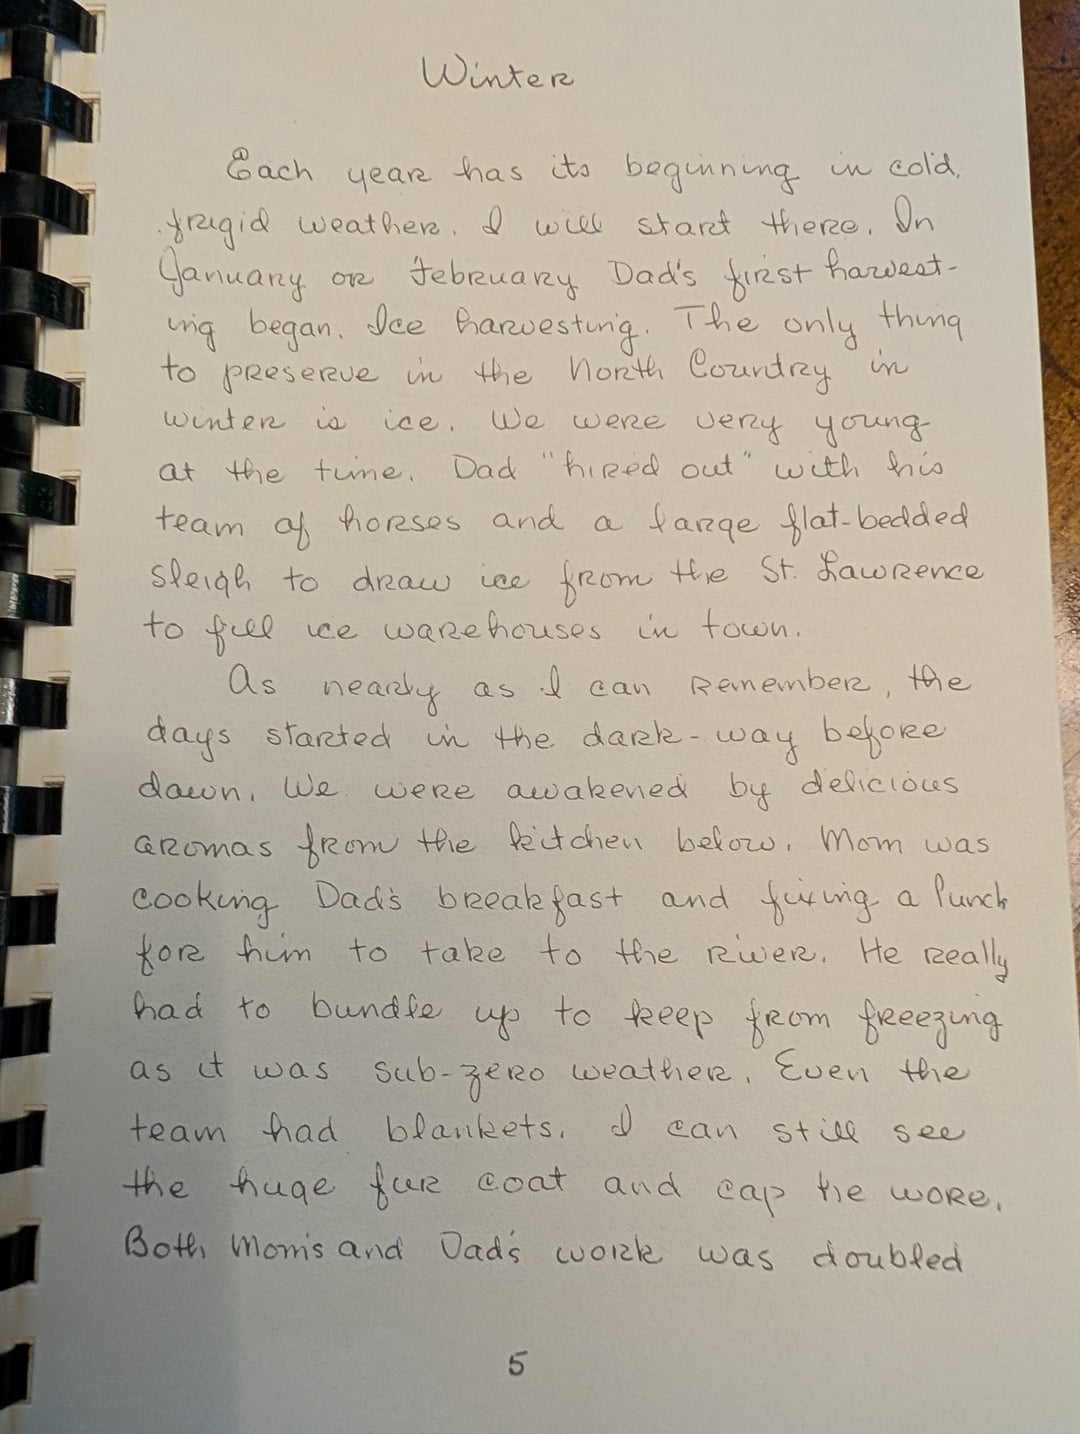 Winter
Each year has its beginning in cold,
frigid weather. I will start there. In
January or February Dad's first harvest-
ing began. Ice harvesting. The only thing
to preserve in the North Country in
winter is ice. We were very young
at the time. Dad "hired out" with his
team of horses and a large flat-bedded
sleigh to draw ice from the St. Lawrence
to fill ice warehouses in town.
As nearly as I can remember, the
days started in the dark - way before
dawn. We were awakened by delicious
aromas from the kitchen below. Mom was
cooking Dad's breakfast and fixing a lunch
for him to take to the river. He really
had to bundle up to keep from freezing
as it was sub-zero weather. Even the
team had blankets. I can still see
the huge fur coat and cap he wore.
Both Mom's and Dad's work was doubled
5